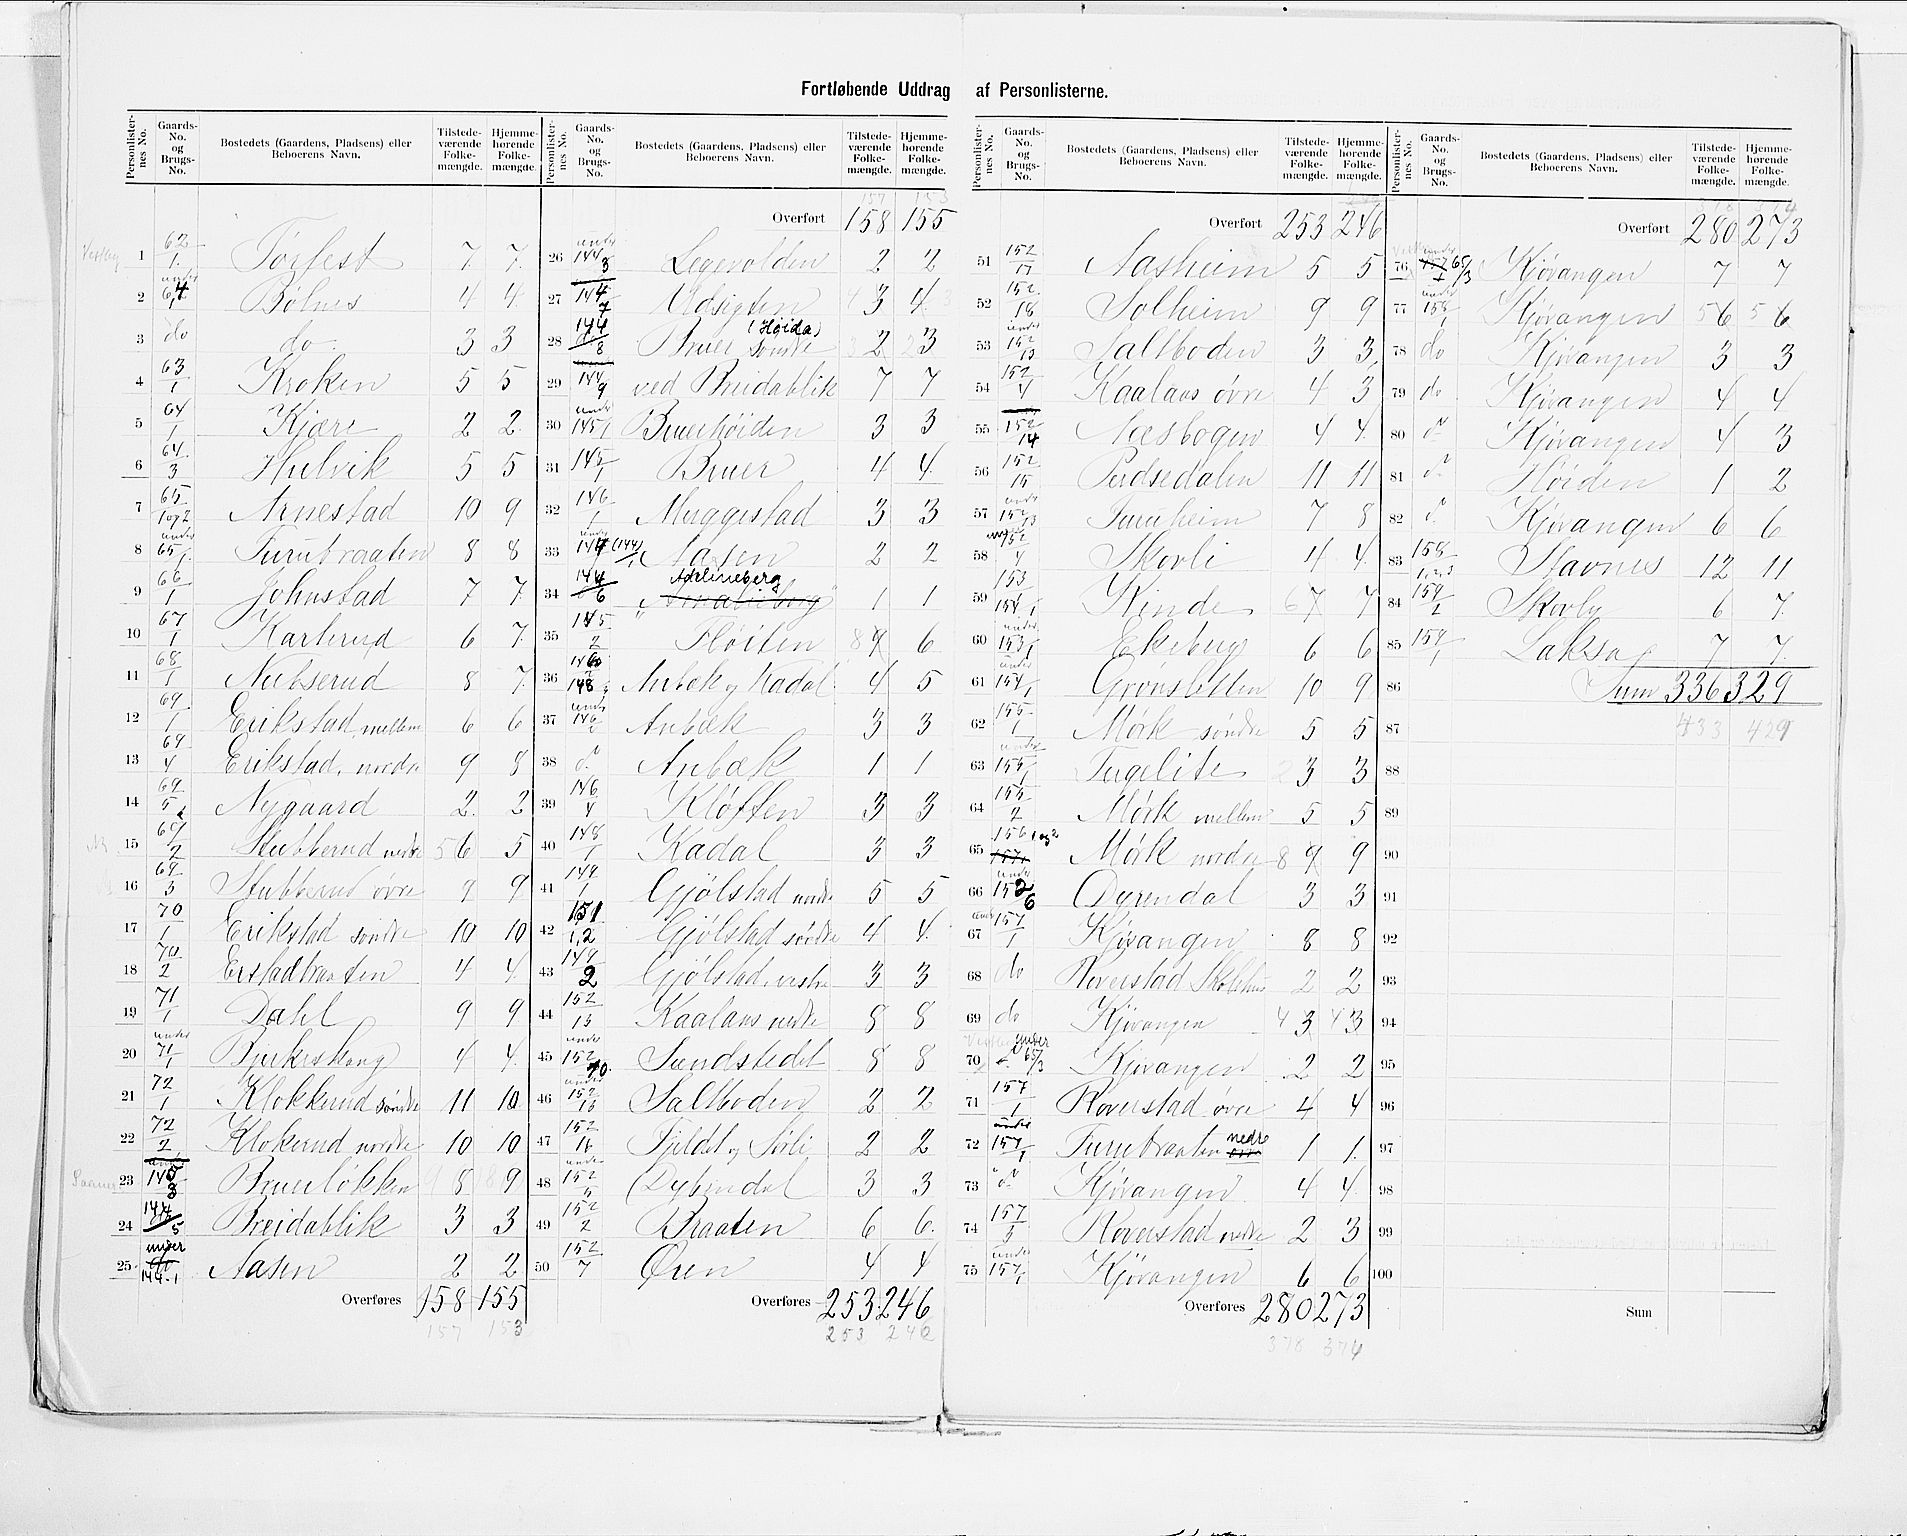 Fortløbende Uddrag af Personlisterne.
Personlisternes No. | Gaards-No. og Brugs-No. | Bostedets (Gaardens, Pladsens) eller Beboerens Navn. | Tilstedeværende Folkemængde. | Hjemmehørende Folkemængde.
1 62/1 Torfest 7 7
2 under 64/1 Bølnes 4 4
3 do do 3 3
4 63/1 Kroken 5 5
5 64/1 Kjære 2 2
6 64/3 Hulvik 5 5
7 65/1 og 2 Arnestad 10 9
8 under 65/1 Furubraaten 8 8
9 66/1 Johnstad 7 7
10 67/1 Karlsrud 6 7
11 68/1 Nubserud 8 7
12 69/1 Erikstad mellem 6 6
13 69/4 Erikstad nordre 9 8
14 69/5 Nygaard 2 2
15 69/2 Stubberud nedre 5 6 5
16 69/3 Stubberud øvre 9 9
17 70/1 Erikstad søndre 10 10
18 70/2 Erstadbraaten 4 4
19 71/1 Dahl 9 9
20 under 71/1 Bjerkeskaug 4 4
21 72/1 Klokkerud søndre 11 10
22 72/2 Klokerud nordre 10 10
23 145/3 Bruerløkken 8 9
24 144/5 Breidablik 3 3
25 under 144.1 Aasen 2 2
Overføres 158 155
157 153
Personlisternes No. | Gaards-No. og Brugs-No. | Bostedets (Gaardens, Pladsens) eller Beboerens Navn. | Tilstedeværende Folkemængde. | Hjemmehørende Folkemængde.
157 153
Overført 158 155
26 under 144/3 Legevolden 2 2
27 144/7 Udsigten 3 4
28 144/8 Bruer søndre (Høida) 2 3
29 144/9 ved Breidablik 7 7
30 under 145/1 Bruerhøiden 3 3
31 145/1 Bruer 4 4
32 146/1 Muggestad 3 3
33 under 144 (144)/1 Aasen 2 2
34 144/6 Adelineberg 1 1
35 145/2 Fløiten 6
36 148 Aubæk og Kadal 4 5
37 under 146 Aubæk 3 3
38 do Aubæk 1 1
39 146/4 Kløften 3 3
40 148/1 Kadal 3 3
41 149/1 Gjølstad nordre 5 5
42 151/1,2 Gjølstad søndre 4 4
43 149/2 Gjølstad vestre 3 3
44 152/13 Kaalaas nedre 8 8
45 under 152/10 Sundstedet 8 8
46 under 152/13 Saltboden 2 2
47 152/16 Fjeldet og Sørli 2 2
48 under 152 Dybendal 3 3
49 152/2 Braaten 6 6
50 152/7 Øren 4 4
Overføres 253 246
253 246
Personlisternes No. | Gaards-No. og Brugs-No. | Bostedets (Gaardens, Pladsens) eller Beboerens Navn. | Tilstedeværende Folkemængde. | Hjemmehørende Folkemængde.
Overført 253 246
51 152/17 Aasheim 5 5
52 152/18 Solheim 9 9
53 under 152/13 Saltboden 3 3
54 152/4 Kaalaas øvre 4 3
55 152/14 Næsbogen 4 4
56 152/15 Perdsedalen 11 11
57 under 152/13 Furuheim 7 8
58 152/4 Skovli 4 4
59 153/1 154/1 Kinde 7 7
60 under 153/1 Ekeberg 6 6
61 under 154/1 Grønsletten 10 9
62 155/1 Mørk søndre 5 5
63 under 155/1 Fugelite 3 3
64 155/2 Mørk mellem 5 5
65 156 1 og 2 Mørk nordre 8 9 9
66 under 152/6 Dyrendal 3 3
67 under 157/1 Kjøvangen 8 8
68 do Roverstad Skolehus 2 2
69 do Kjøvangen 4 3 4 3
70 under 65/3 Kjøvangen 2 2
71 157/1 Roverstad øvre 4 4
72 under 157/1 Furubraaten nedre 1 1
73 do Kjøvangen 4 4
74 157/3 Roverstad nedre 2 3
75 under 157/1 Kjøvangen 6 6
Overføres 280 273
378 374
Personlisternes No. | Gaards-No. og Brugs-No. | Bostedets (Gaardens, Pladsens) eller Beboerens Navn. | Tilstedeværende Folkemængde. | Hjemmehørende Folkemængde.
378 374
Overført 280 273
76 65/3 Kjøvangen 7 7
77 under 158/1 Kjøvangen 5 6 5 6
78 do Kjøvangen 3 3
79 do Kjøvangen 4 4
80 do Kjøvangen 4 3
81 do Høiden 1 2
82 do Kjøvangen 6 6
83 158/1,2,3 Stavnes 12 11
84 159/2 Skovly 6 7
85 159/1 Laksa 7 7
86 Sum 336 329
87 433 429
88
89
90
91
92
93
94
95
96
97
98
99
100
Sum